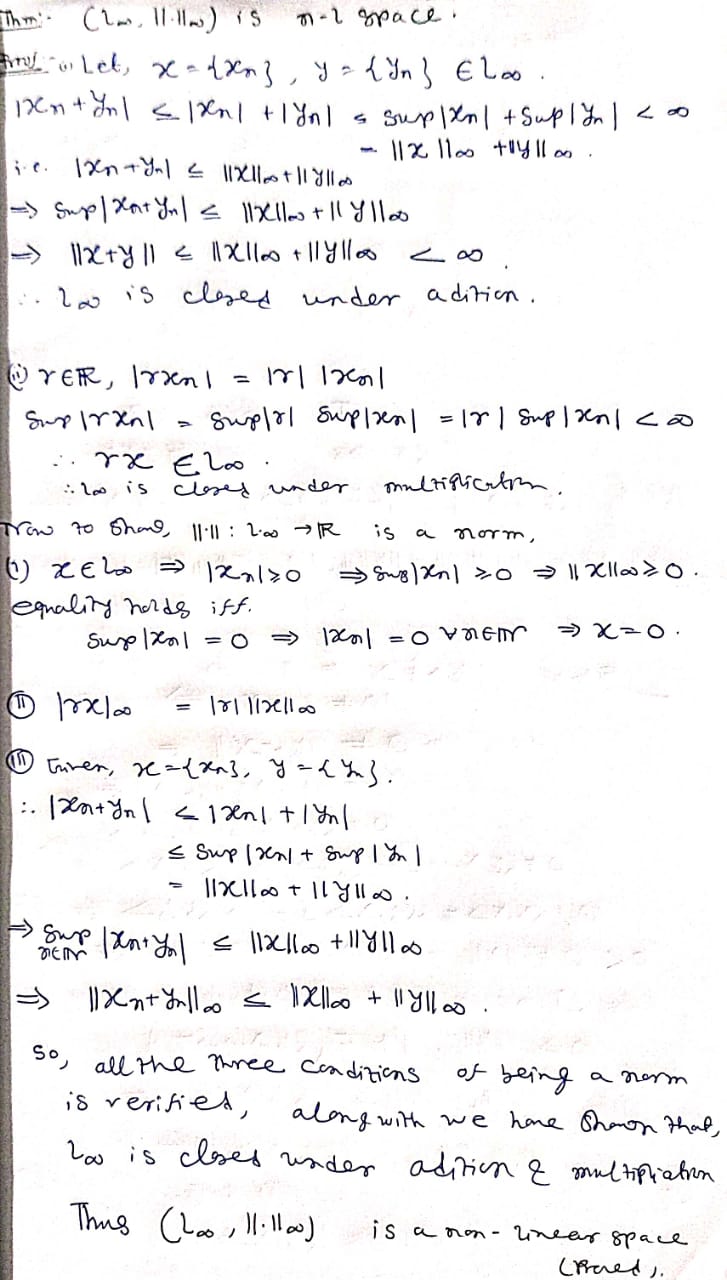 Thm:- (l∞, ||.||∞) is n-l space.
Proof (i) Let, x = {xn}, y = {yn} ∈ l∞.
|xn + yn| ≤ |xn| + |yn| ≤ sup|xn| + sup|yn| < ∞
= ||x||∞ + ||y||∞.
i.e. |xn + yn| ≤ ||x||∞ + ||y||∞
⇒ sup|xn + yn| ≤ ||x||∞ + ||y||∞
⇒ ||x+y|| ≤ ||x||∞ + ||y||∞ < ∞.
∴ l∞ is closed under adition.
(ii) r∈ℝ, |rxn| = |r| |xn|
Sup |rxn| = sup|r| sup|xn| = |r| sup|xn| < ∞
∴ rx ∈ l∞.
∴ l∞ is closed under multiplication.
Now to show, ||.|| : l∞ → ℝ is a norm,
(i) x∈l∞ ⇒ |xn|≥0 ⇒ sup|xn| ≥0 ⇒ ||x||∞≥0.
equality holds iff.
sup|xn| = 0 ⇒ |xn| = 0 ∀ n∈ℕ ⇒ x=0.
(ii) |rx|∞ = |r| ||x||∞
(iii) Given, x={xn}, y={yn}.
∴ |xn+yn| ≤ |xn| + |yn|
≤ sup|xn| + sup|yn|
= ||x||∞ + ||y||∞.
⇒ sup n∈ℕ |xn+yn| ≤ ||x||∞ + ||y||∞
⇒ ||xn+yn||∞ ≤ ||x||∞ + ||y||∞.
So, all the three conditions of being a norm
is verified, along with we have shown that,
l∞ is closed under adition & multipliation
Thus (l∞, ||.||∞) is a non-linear space
(Proved).